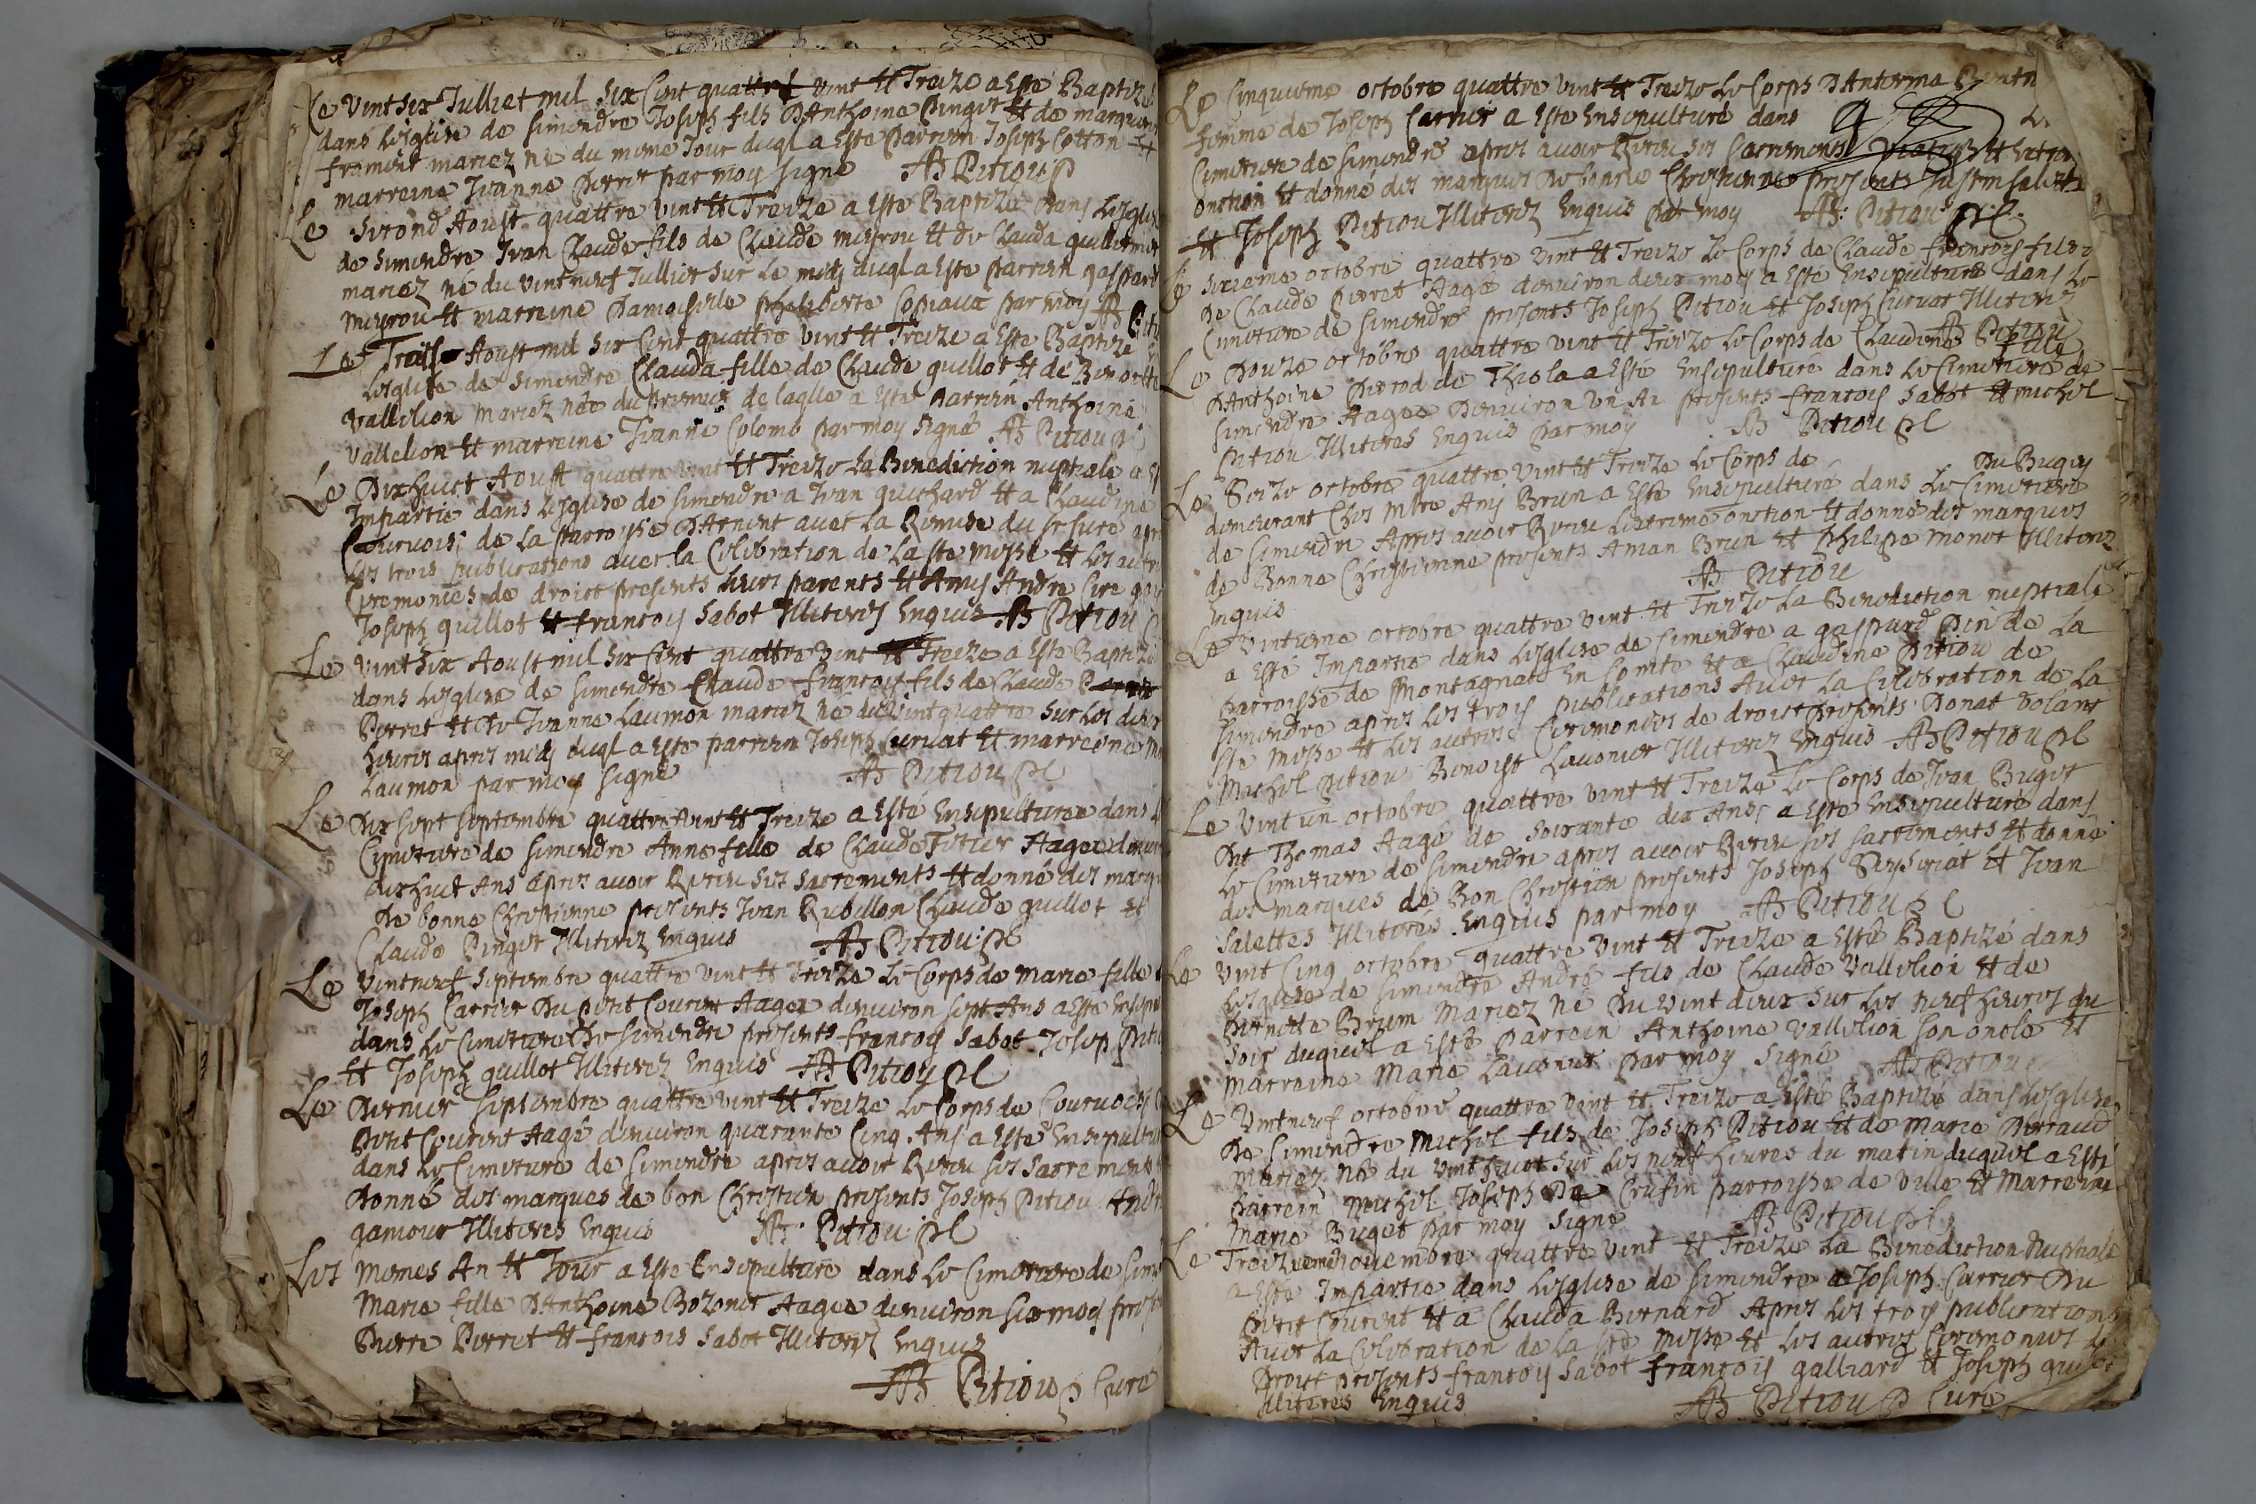 Le vintsix Julliet mil six Cent quattre vint et Treize a Esté Baptizé
dans Lesglise de simendre Joseph fils DAnthoine Pingut et de marquer
froment mariez né du meme Jour duql a Este Parrein Joseph Cotton et
marreine Jeanne Perret par moy signé AB Pitiou P
Le second Aoust quattre vint et Treize a Esté Baptizé dans Lesglise
de simendre Jean Claude fils de Claude mieron et de Clauda guillermet
mariez né du vintneuf Julliet sur Le midy duql a Esté parrein gaspard
mieron et marreine Damoiselle philiberte Copiaux par moy AB Piti
Le Treise Aoust mil six Cent quattre vint et Treize a Esté Baptizé
Lesglise de simendre Clauda fille de Claude guillot et de Benoitte
Vallelion mariez née du premier de laqlle a Esté Parrein Anthoine
Vallelion et marreine Jeanne Colomb par moy signé AB Pitiou P
Le Dixhuict Aoust quattre vint et Treize La Benediction nuptiale a
Impartie dans Lesglise de simendre a Jean guichard et a Claudine
Couruoisi de La parroisse DArnent auec La Remise du sr Cure apr
Les trois publications auec la Celebration de La ste messe et Les autre
Ceremonies de droict presents Leurs parents et Amys Andre
Joseph guillot et francoys Sabot Illiterez Enquis AB Pitiou
Le vintsix Aoust mil six Cent quattre vint et Treize a Esté Baptizé
dans Lesglise de simendre Claude francoys fils de Claude
Perret et de Jeanne Laumon mariez né du vintquattre sur Les deux
heures apres midy duql a Esté parrein Joseph Curuat et marreine
Laumon par moy signé AB Pitiou P C
Le Dixsept septembre quattre vint et Treize a Esté Ensepulturee dans L
Cimetiere de simendre Anne fille de Claude Titier Aagee denuiron
dixhuict Ans apres auoir Receu ses sacrements et donné des marq
De bonne Chrestienne presents Jean Rubillon Claude guillot et
Claude Pingut Illiterez Enquis AB Pitiou P C
Le vintneuf septembre quattre vint et Treize Le Corps de Marie fille
Joseph Carrier Du petit Courent Aagee denuiron sept Ans a Esté
dans Le Cimetiere De simendre presents francoys Sabot Josep Piti
et Joseph guillot Illiterez Enquis AB Pitiou P C
Le Dernier septembre quattre vint et Treize Le Corps de Couruoisi
Petit Courent Aagé denuiron quarante Cinq Ans a Esté Ensepultu
dans Le Cimetiere de simendre apres auoir Receu ses sacrements
Donné des marques de bon Chrestien presents Joseph Pitiou Andr
gamour Illiteres Enquis AB Pitiou P C
Les memes An et Jour a Esté Ensepulturé dans Le Cimetiere de sim
Marie fille DAnthoine Bozonet Aagee denuiron six moys pres
Pierre Perret et francois Sabot Illiterez Enquis
AB Pitiou P Cure
Le Cinquieme octobre quattre vint et Treize Le Corps DAnterma
femme de Joseph Carrier a Esté Ensepulturé dans
Cimetiere de simendre apres auoir Receu ses sacrements Viatiq et
onction et donné des marques De bonne Chrestienne presents
et Joseph Pitiou Illiterez Enquis Par moy AB Pitiou P C
Le sixieme octobre quattre vint et Treize Le Corps de Claude francoys fils
De Claude Perret Aagé denuiron deux moys a Esté Ensepulturé dans Le
Cimetiere de simendre presents Joseph Pitiou et Joseph Curuat Illiterez
AB Pitiou
Le Douze octobre quattre vint et Treize Le Corps de Claudine fille
DAnthoine Perrod de Thiola a Esté Ensepulturé dans Le Cimetiere de
simendre Aagee Denuiron Un An presents francoys Sabot et michel
Pitiou Illiteres Enquis Par moy AB Pitiou P C
Le Seize octobre quattre vint et Treize Le Corps de Du Bugey
demeurant Ches mtre Amy Brun a Esté Ensepulturé dans Le Cimetiere
de simendre Apres auoir Receu Lextreme onction et donné des marques
de Bonne Chrestienne presents Aman Brun et philipe monet Illiterez
Enquis AB Pitiou
Le Vintieme octobre quattre vint et Treize La Benediction nuptiale
a Esté Impartie dans Lesglise de simendre a gaspard Pin de La
parroisse de Montagnat En Comte et a Claudine Pitiou de
simendre apres Les trois publications Auec La Celebration de La
ste messe et Les autres Ceremonies de droict presents Donat Volant
Michel Pitiou Benoist Lauonier Illiterez Enquis AB Pitiou P C
Le vintun octobre quattre vint et Treize Le Corps de Jean Buget
Dit Thomas Aagé de soixante dix Ans a Esté Ensepulturé dans
Le Cimetiere de simendre apres auoir Receu ses sacrements et donné
des marques de Bon Chrestien presents Joseph et Jean
Salettes Illiteres Enquis par moy AB Pitiou P C
Le vint Cinq octobre quattre vint et Treize a Esté Baptizé dans
Lesglise de simendre André fils de Claude Vallelion et de
Pernette Brun Mariez né Du vint deux sur Les neuf heures du
soir duquel a Esté Parrein Anthoine Vallelion son oncle et
marreine Marie Lauonier Par moy signé AB Pitiou
Le Vintneuf octobre quattre vint et Treize a Esté Baptizé dans Lesglise
De simendre Michel fils de Joseph Pitiou et de Marie Perraud
Mariez né du vinthuict sur Les neuf heures du matin duquel a Esté
parrein Michel Joseph De Crusin parroisse de Ville et Marreine
Marie Buget Par moy signé AB Pitiou P C
Le Treizieme nouembre quattre vint et Treize La Benediction Nuptiale
a Esté Impartie dans Lesglise de simendre a Joseph Carrier Du
petit Courent et a Clauda Bernard Apres Les troys publications
Auec La Celebration de La ste messe et Les autres Ceremonies
Droict presents francoys Sabot francoys galliard et Joseph guillot
Illiteres Enquis AB Pitiou P Cure